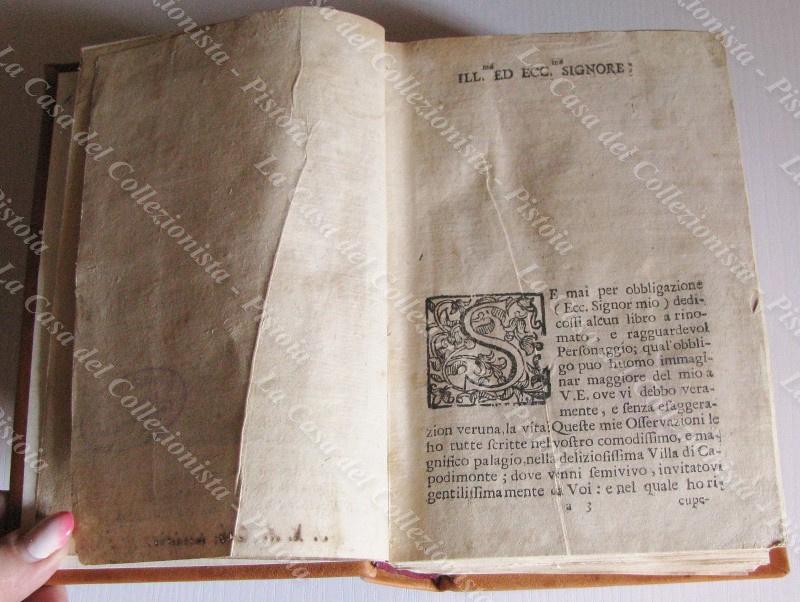 ILL.mo ED ECC.mo SIGNORE:
SE mai per obbligazione
( Ecc. Signor mio ) dedi-
cossi alcun libro a rino-
mato e ragguardevol
Personaggio; qual'obbli-
go puo huomo immagi-
nar maggiore del mio a
V.E. ove vi debbo vera-
mente, e senza esaggera-
zion veruna, la vita: Queste mie Osservazioni le
ho tutte scritte nel vostro comodissimo, e ma-
gnifico palagio, nella deliziosissima Villa di Ca-
podimonte; dove venni semivivo, invitatovi
gentilissimamente da Voi: e nel quale ho ri-
a 3 cupe-
La Casa del Collezionista - Pistoia